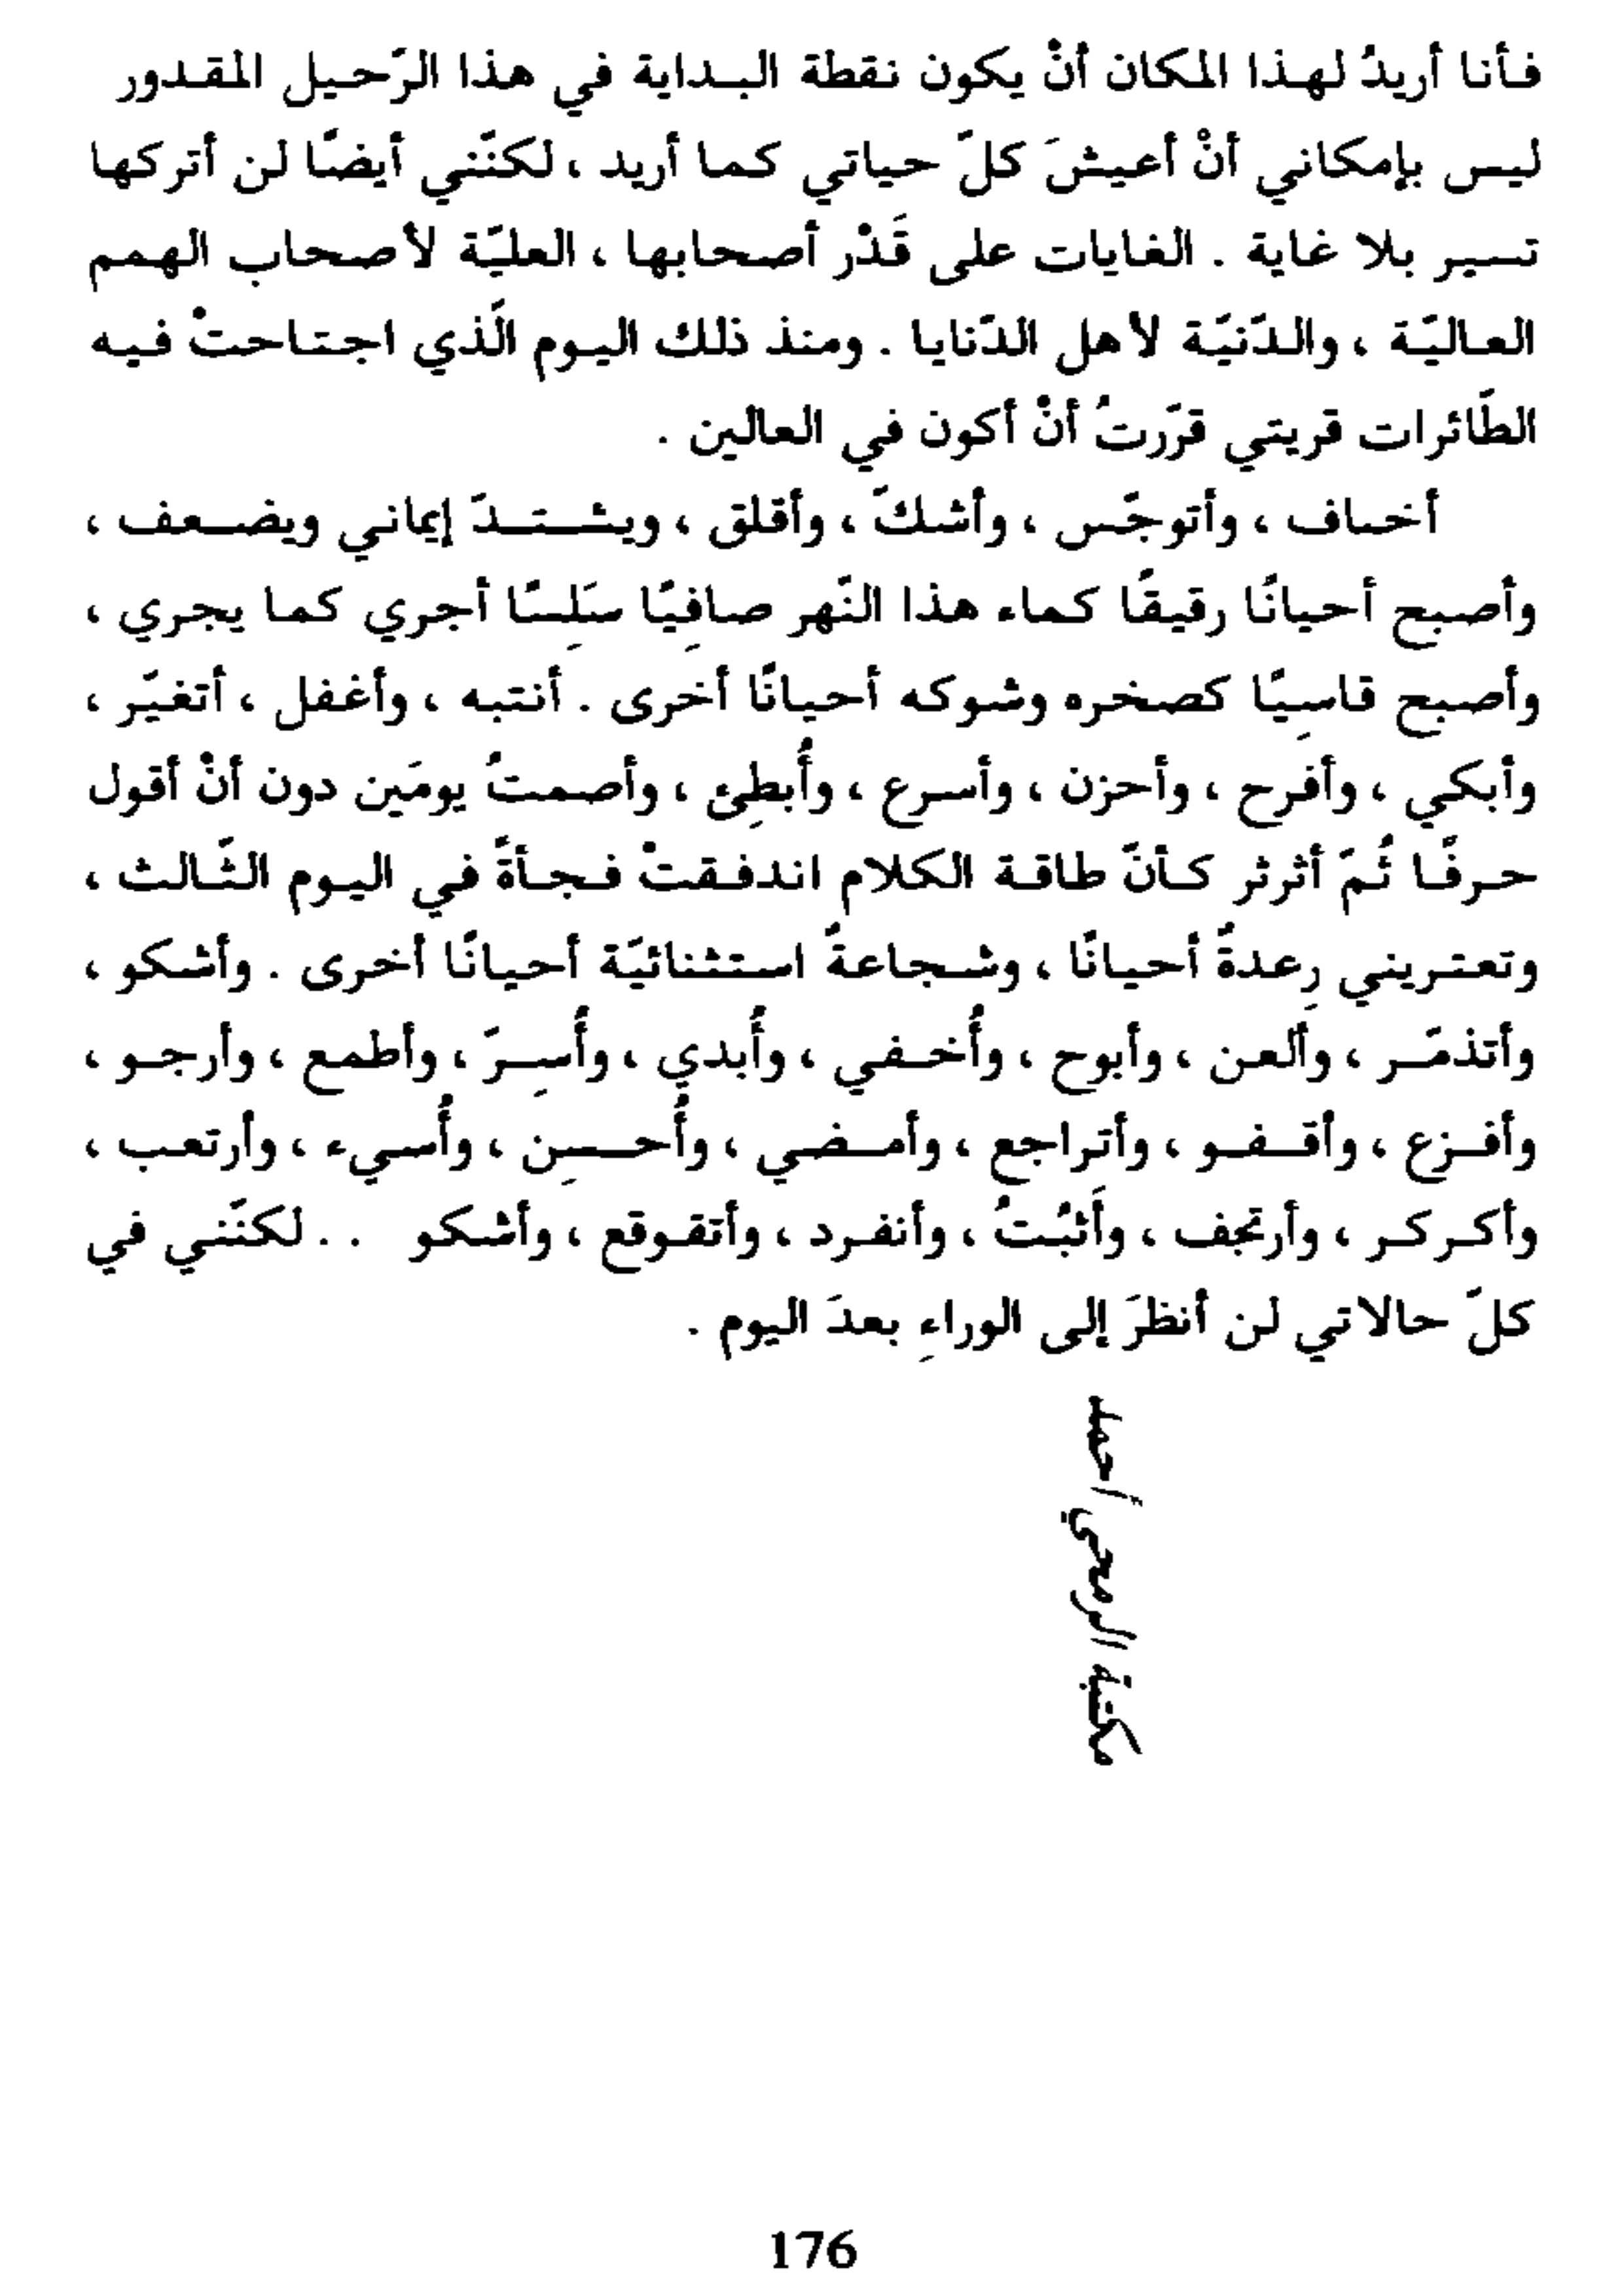 فأنا أريدُ لهذا المكان أنْ يكون نقطة البداية في هذا الرّحيل المقدور
ليس بإمكاني أنْ أعيشَ كلّ حياتي كما أريد ، لكنّني أيضًا لن أتركها
تسير بلا غاية . الغايات على قَدْر أصحابها ، العليّة لأصحاب الهمم
العاليّة ، والدّنيّة لأهل الدّنايا . ومنذ ذلك اليوم الّذي اجتاحتْ فيه
الطّائرات قريتي قرّرتُ أنْ أكون في العالين .
أخاف ، وأتوجّس ، وأشكّ ، وأقلق ، ويشتدّ إيماني ويضعف ،
وأصبح أحيانًا رقيقًا كماء هذا النّهر صافِيًا سَلِسًا أجري كما يجري ،
وأصبح قاسِيًا كصخره وشوكه أحيانًا أخرى . أنتبه ، وأغفل ، أتغيّر ،
وأبكي ، وأفرح ، وأحزن ، وأسرع ، وأُبطِئ ، وأصمتُ يومَين دون أنْ أقول
حرفًا ثُمّ أثرثر كأنّ طاقة الكلام اندفقتْ فجأةً في اليوم الثّالث ،
وتعتريني رِعدةً أحيانًا ، وشجاعةً استثنائيّة أحيانًا أخرى . وأشكو ،
وأتذمّر ، وألعن ، وأبوح ، وأُخفي ، وأُبدي ، وأُسِرّ ، وأطمع ، وأرجو ،
وأفزع ، وأقفو ، وأتراجع ، وأمضي ، وأُحسِن ، وأُسيء ، وأرتعب ،
وأكركر ، وأرتجف ، وأَثبُتُ ، وأنفرد ، وأتقوقع ، وأشكو . . لكنّني في
كلّ حالاتي لن أنظرَ إلى الوراءِ بعدَ اليوم .
مكتبة الرمحي أحمد
176